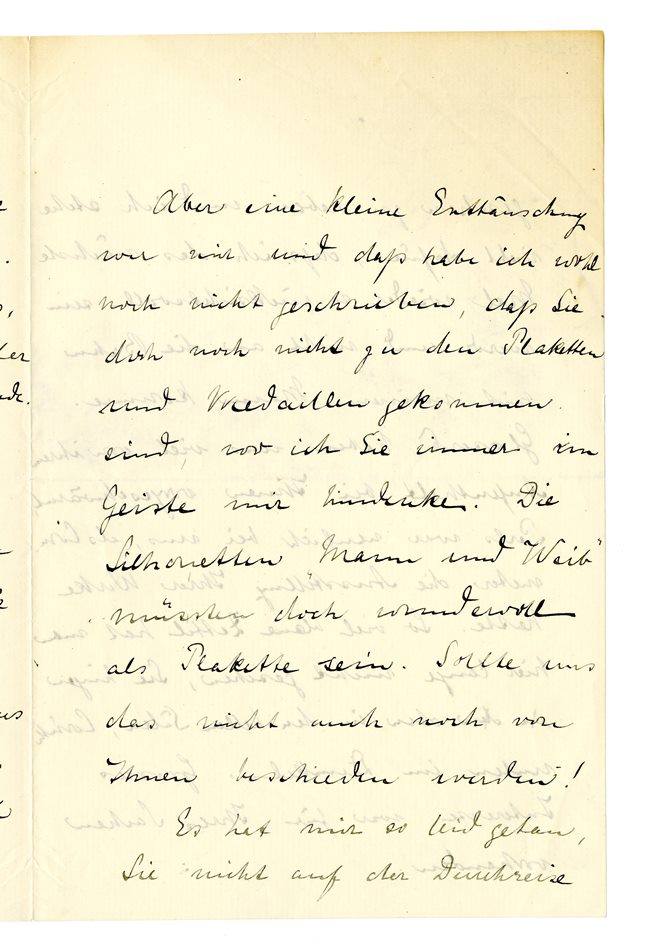 Aber eine kleine Enttäuschung
war mir und daß habe ich wohl
noch nicht geschrieben, daß Sie
doch noch nicht zu den Plaketten
und Medaillen gekommen
sind, wo ich Sie immer im
Geiste mir hindenke. Die
Silhouetten Mann und Weib"
müssten doch wundervoll
als Plakette sein. Sollte uns
das nicht auch noch von
Ihnen beschieden werden!
Es hat mir so leid getan,
Sie nicht auf der Durchreise